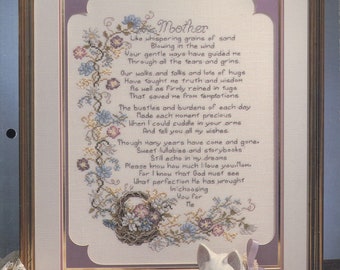 Mother
Like whispering grains of sand
Blowing in the wind
Your gentle ways have guided me
Through all the tears and grins.
Our walks and talks and lots of hugs
Have taught me truth and wisdom
As well as firmly reined in tugs
That saved me from temptations.
The bustles and burdens of each day
Made each moment precious
When I could cuddle in your arms
And tell you all my wishes.
Though many years have come and gone,
Sweet lullabies and storybooks
Still echo in my dreams
Please know how much I love you
For I know that God must see
What perfection He has wrought
In choosing
You for
Me